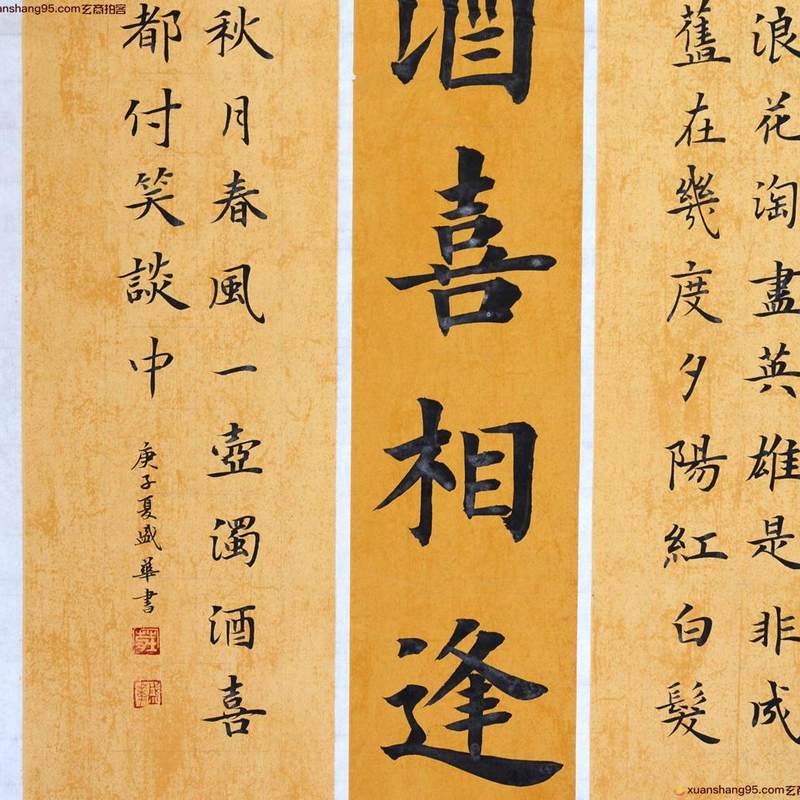 浪花淘盡英雄是非成
舊在幾度夕陽紅白髮
酒喜相逢
秋月春風一壺濁酒喜
都付笑談中
庚子夏盛華书
xuanshang95.com玄商拍客
xuanshang95.com玄商拍客